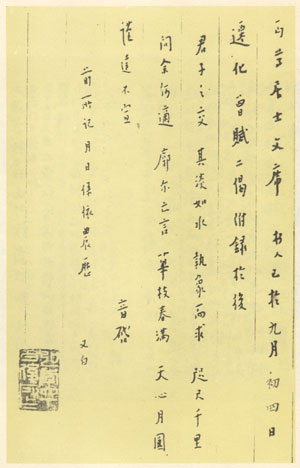 丏尊居士文席 朽人已於九月初四日
遷化曾賦二偈附錄於後
君子之交 其淡如水 執象而求 咫尺千里
問余何適 廓尔亡言 華枝春滿 天心月圓
謹達不宣
音啟
前所記月日係依農歷
又白